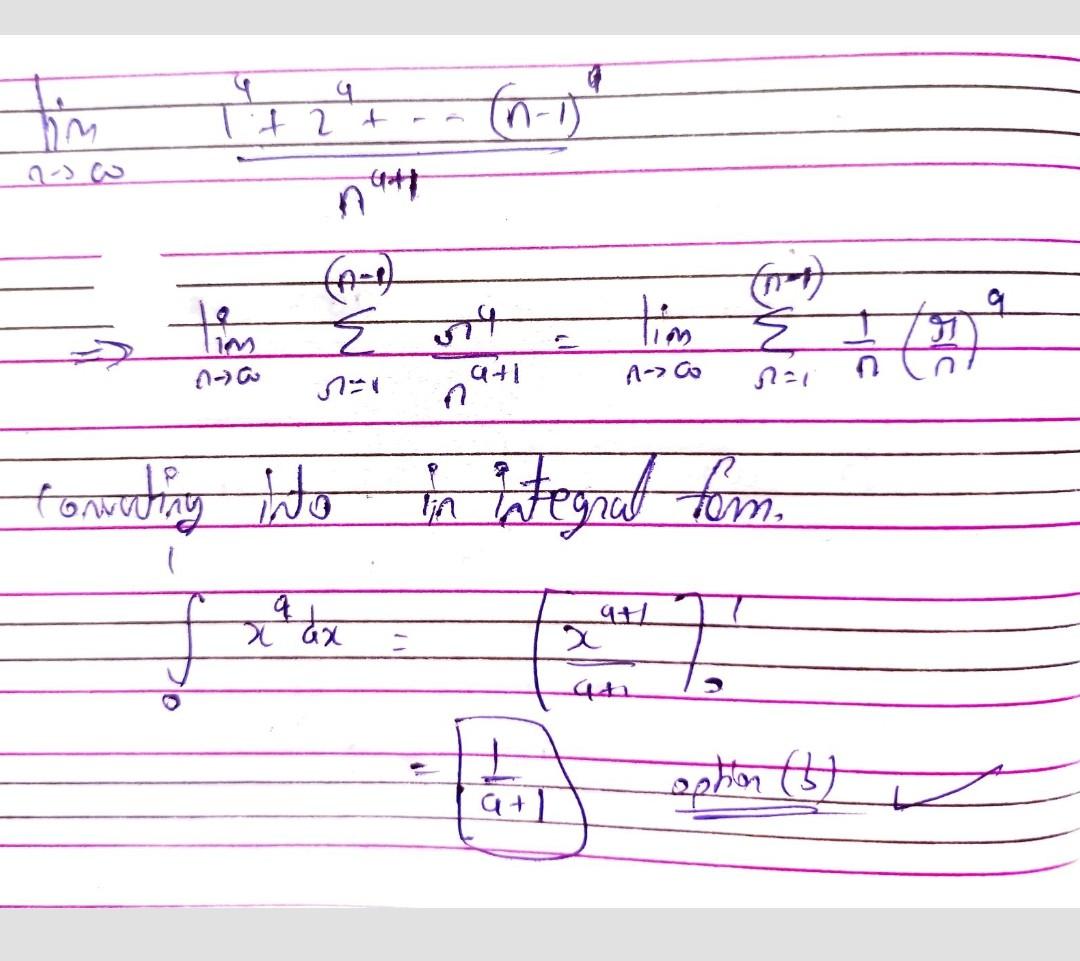 lim n→∞ (1^a + 2^a + --- (n-1)^a) / n^(a+1)
⇒ lim n→∞ Σ_{r=1}^{(n-1)} r^a / n^(a+1) = lim n→∞ Σ_{r=1}^{(n-1)} 1/n (r/n)^a
converting into in integral form.
∫_0^1 x^a dx = [x^(a+1) / (a+1)]_0^1
= 1/(a+1) option (b) ✓